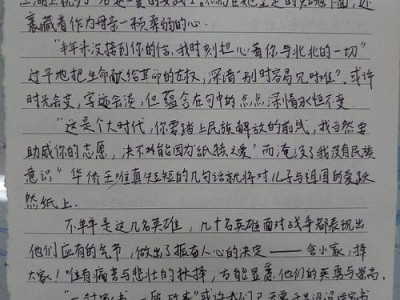 裹藏着作为母亲一抹柔弱的心。
"半年没接到你的信，我时刻担心着你与北北的一切"
过平地把生命献给其中的左权，深谙"别时容易见时难"。或许
时光会变，字迹会淡，但蕴含在句中的点点深情永恒不变。
"这是个大时代，你要踏上民族解放的前线，我当然要
助成你的志愿，决不能因为'舐犊之爱'而淹没了我没有民族
意识" 华侨王唯真短短的几句话就将对儿子与祖国的爱跃
然纸上。
不单单是这几名英雄，几十名英雄面对战争都表现出
他们应有的气节，做出了振奋人心的决定——舍小家，择
大家！唯有痛苦与悲壮的抉择，方能显露他们的英勇与崇高。